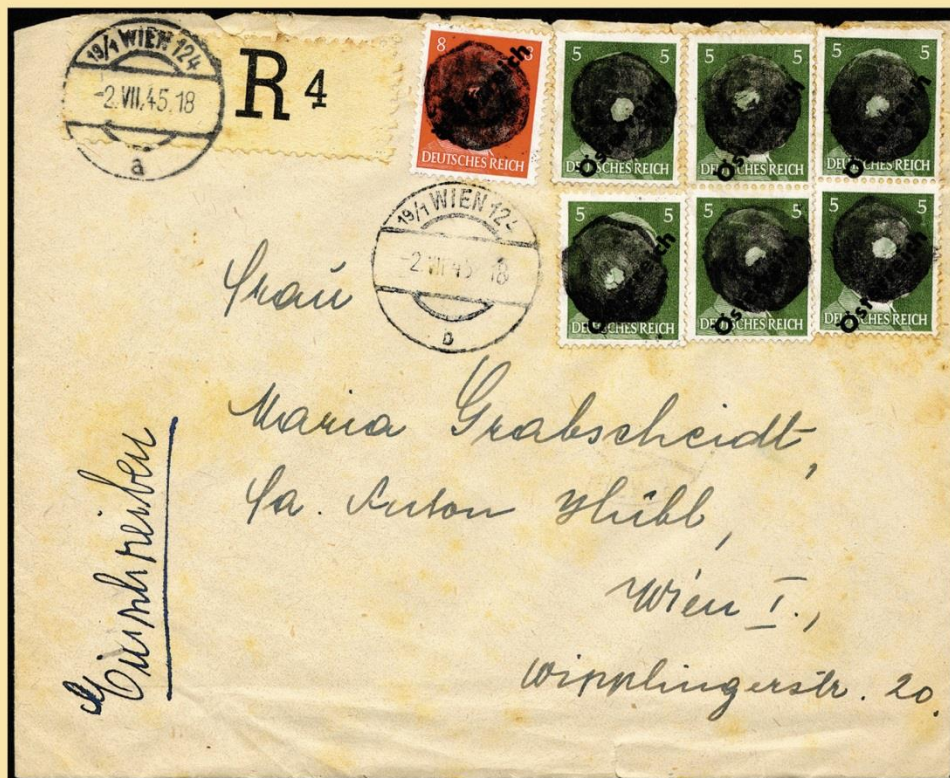 19/1 WIEN 124
-2.VII.45.18
a
R 4
8 8
Österreich
DEUTSCHES REICH
5 5
Österreich
DEUTSCHES REICH
5 5
Österreich
DEUTSCHES REICH
5 5
Österreich
DEUTSCHES REICH
19/1 WIEN 124
-2.VII.45.18
b
5 5
Österreich
DEUTSCHES REICH
5 5
Österreich
DEUTSCHES REICH
5 5
Österreich
DEUTSCHES REICH
Frau
Maria Grabscheidt,
Fa. Anton Hübl,
Wien I.,
Wipplingerstr. 20.
Einschreiben